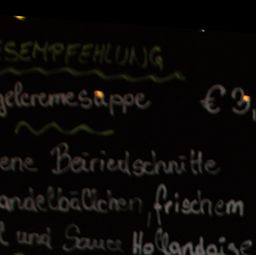 ESEMPFEHLUNG
gelcremesuppe € 3,
ene Beiriedschnitte
andelbällchen, frischem
l und Sauce Hollandaise